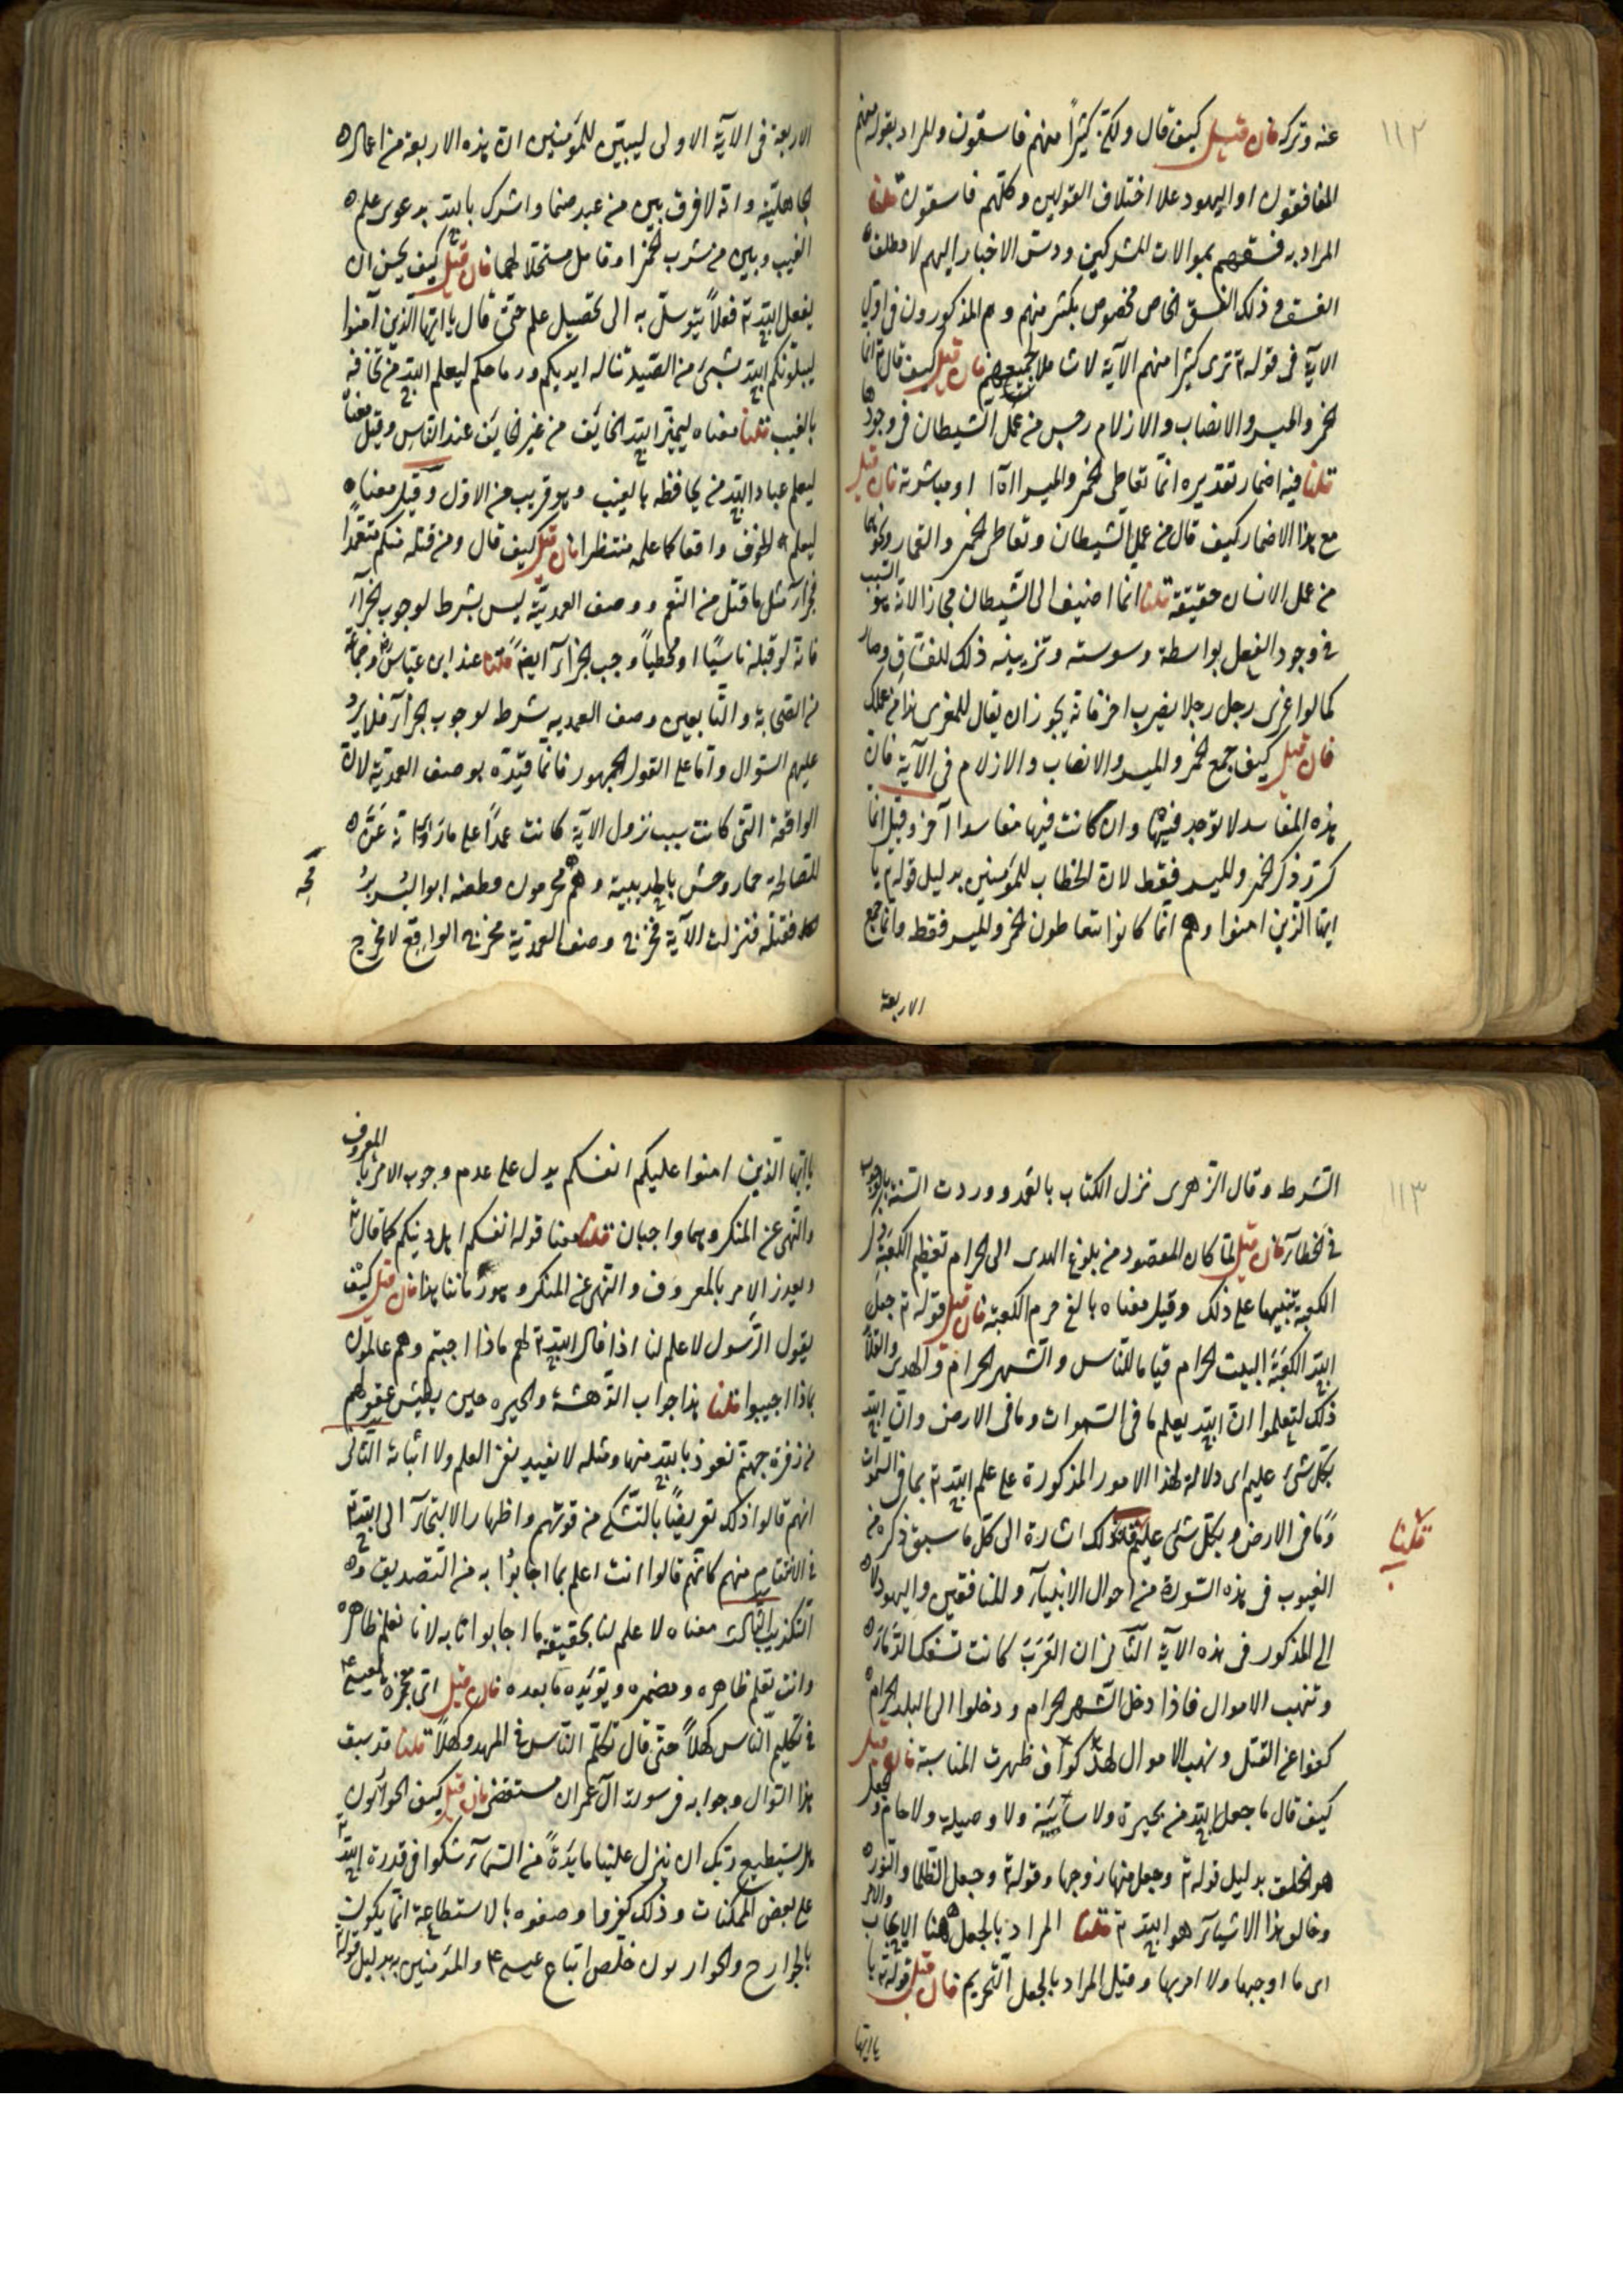 ١١٢
عنه وتركه فان قيل كيف قال ولكن كثيراً منهم فاسقون والمراد بقوله منهم
المنافقون او اليهود على اختلاف القولين وكلهم فاسقون قلنا
المراد به فسقهم بموالات المشركين ودس الاخبار اليهم لا مطلق
الفسق وذلك الفسق الخاص مخصوص بكثير منهم وهم المذكورون في اول
الاية في قوله تع ترى كثيرا منهم الآية لا شاملا لجميعهم فان قيل كيف قال تع انما
الخمر والميسر والانصاب والازلام رجس من عمل الشيطان في وجودها
قلنا فيه اضمار تقديره انما تعاطى الخمر والميسر او مباشرته فان قيل
مع هذا الاضمار كيف قال من عمل الشيطان وتعاطى الخمر والقمار ونحوهما
من عمل الانسان حقيقة قلنا انما اضيف الى الشيطان مجازا لانه هو السبب
في وجود الفعل بواسطة وسوسته وتزيينه ذلك للفساق وصار
كما لو اغرى رجل رجلا بضرب اخر فانه يجوز ان يقال للمغرى هذا من عملك
فان قيل كيف جمع الخمر والميسر والانصاب والازلام في الآية فان
هذه المفاسد لا توجد فيها وان كانت فيها مفاسدا آخر وقيل انما
كرر ذكر الخمر والميسر فقط لان الخطاب للمؤمنين بدليل قوله تع يا
ايها الذين امنوا وهم انما كانوا يتعاطون الخمر والميسر فقط وانما جمع
الاربعة
الاربعة في الآية الاولى ليبين للمؤمنين ان هذه الاربعة من اعمال
الجاهلية وانه لا فرق بين من عبد صنما واشرك بالله بدعوى علم
الغيب وبين من شرب الخمر او قامر مستحلا لهما فان قيل كيف يحسن ان
يفعل الله تع فعلاً يتوسل به الى تحصيل علم حتى قال يا ايها الذين آمنوا
ليبلونكم الله بشئ من الصيد تناله ايديكم ورماحكم ليعلم الله من يخافه
بالغيب قلنا معناه ليميز الله الخائف من غير الخايف عند الناس وقيل معناه
ليعلم عباد الله من يخافه بالغيب وهو قريب من الاول وقيل معناه
ليعلم الخوف واقعا كما علمه منتظرا فان قيل كيف قال ومن قتله منكم متعمدًا
فجزآء مثل ما قتل من النعم ووصف العمدية ليس بشرط لوجوب الجزآء
فانه لو قتله ناسيًا او مخطيًا وجب الجزآء ايضً قلنا عند ابن عباس وجماعة
من الصحابة والتابعين وصف العمدية شرط لوجوب الجزآء فلا يرد
عليهم السؤال واما على القول الجمهور فانما قيده بوصف العمدية لان
الواقعة التي كانت سبب نزول الآية كانت عمدًا على ما روى انه عنّ
للصحابة حمار وحش بالحديبية وهم محرمون فطعنه ابو اليسر برمحه
فقتله فنزلت الآية فخرج وصف العمدية مخرج الواقع لا مخرج
١١٣
الشرط وقال الزهري نزل الكتاب بالعمد ووردت السنة بالوجوب
في الخطآء فان قيل لما كان المقصود من بلوغ الهدى الى الحرام تعظيم الكعبة ذكر
الكعبة تنبيها على ذلك وقيل معناه بالغ حرم الكعبة فان قيل قوله تع جعل
الله الكعبة البيت الحرام قياما للناس والشهر الحرام والهدى والقلائد
ذلك لتعلموا ان الله يعلم ما في السموات وما في الارض وان الله
بكل شئ عليم اى دلالة لهذا الامور المذكورة على علم الله تع بما في السموات
وما في الارض وبكل شئ عليم قلنا ذلك اشارة الى كل ما سبق ذكره من
قلنا
الغيوب في هذه السورة من احوال الانبيآء والمنافقين واليهود لا
الى المذكور في هذه الاية الثانى ان العرب كانت تسفك الدمآء
وتنهب الاموال فاذا دخل الشهر الحرام ودخلوا الى البلد الحرام
كفوا عن القتل ونهب الاموال فظهرت المناسبة فان قيل
كيف قال ما جعل الله من بحيرة ولا سائبة ولا وصيلة ولا حام والجعل
هو الخلق بدليل قوله تع وجعل منها زوجها وقوله تع وجعل الظلمات والنور
وخالق هذا الاشيآء هو الله تع قلنا المراد بالجعل هنا الايجاب والامر
اى ما اوجبها ولا امر بها وقيل المراد بالجعل التحريم فان قيل قوله تع يا
يا ايها
يا ايها الذين امنوا عليكم انفسكم يدل على عدم وجوب الامر بالمعروف
والنهى عن المنكر وهما واجبان قلنا معنا قوله انفسكم اهل دينكم كما قال تع
الامر بالمعروف والنهى عن المنكر وهو زماننا هذا فان قيل كيف
يقول الرسول لا علم لنا اذا قال الله تع لهم ماذا اجبتم وهم عالمون
بماذا اجيبوا قلنا هذا جواب الدهشة والحيرة حين يطيش عقولهم
من زفرة جهنم نعوذ بالله منها ومثله لا يفيد نفى العلم ولا اثباته الثانى
انهم قالوا ذلك تعريضًا بالتشكى من قومهم واظهار الالتجآء الى الله تع
في الانتقام منهم كانهم قالوا انت اعلم بما اجابوا به من التصديق و
التكذيب الثالث معناه لا علم لنا بحقيقة ما اجابوا به لانا نعلم ظاهره
وانت تعلم ظاهره ومضمره ويؤيده ما بعده فان قيل اى معجزة لعيسى
في تكليم الناس كهلاً حتى قال تكلم الناس في المهد وكهلاً قلنا قد سبق
هذا السؤال وجوابه في سورة آل عمران مستقضى فان قيل كيف قال الحواريون
هل يستطيع ربك ان ينزل علينا مايدة من السمآء شكوا في قدرة الله تع
على بعض الممكنات وذلك كفر وا وصفوه بالاستطاعة انما يكون
بالجوارح والحواريون خلص اتباع عيسى والمؤمنين به بدليل قوله